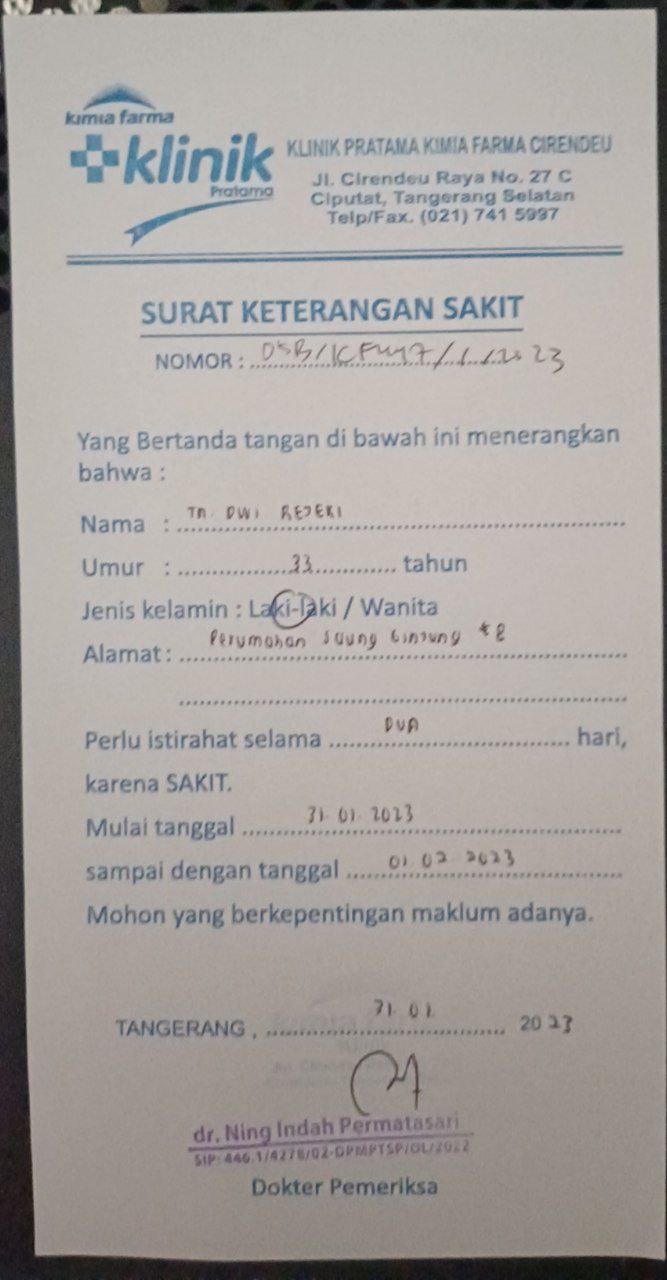 kimia farma
klinik
Pratama
KLINIK PRATAMA KIMIA FARMA CIRENDEU
Jl. Cirendeu Raya No. 27 C
Ciputat, Tangerang Selatan
Telp/Fax. (021) 741 5997
SURAT KETERANGAN SAKIT
NOMOR :
Yang Bertanda tangan di bawah ini menerangkan
bahwa :
Nama : TN. DWI REJEKI
Umur : 33 tahun
Jenis kelamin : Laki-laki / Wanita
Alamat : Perumahan
Perlu istirahat selama DUA hari,
karena SAKIT.
Mulai tanggal 31.01.2023
sampai dengan tanggal 01 02 2023
Mohon yang berkepentingan maklum adanya.
TANGERANG , 31.01 2023
dr. Ning Indah Permatasari
SIP: 446.1/4278/02-DPMPTSP/OL/2022
Dokter Pemeriksa